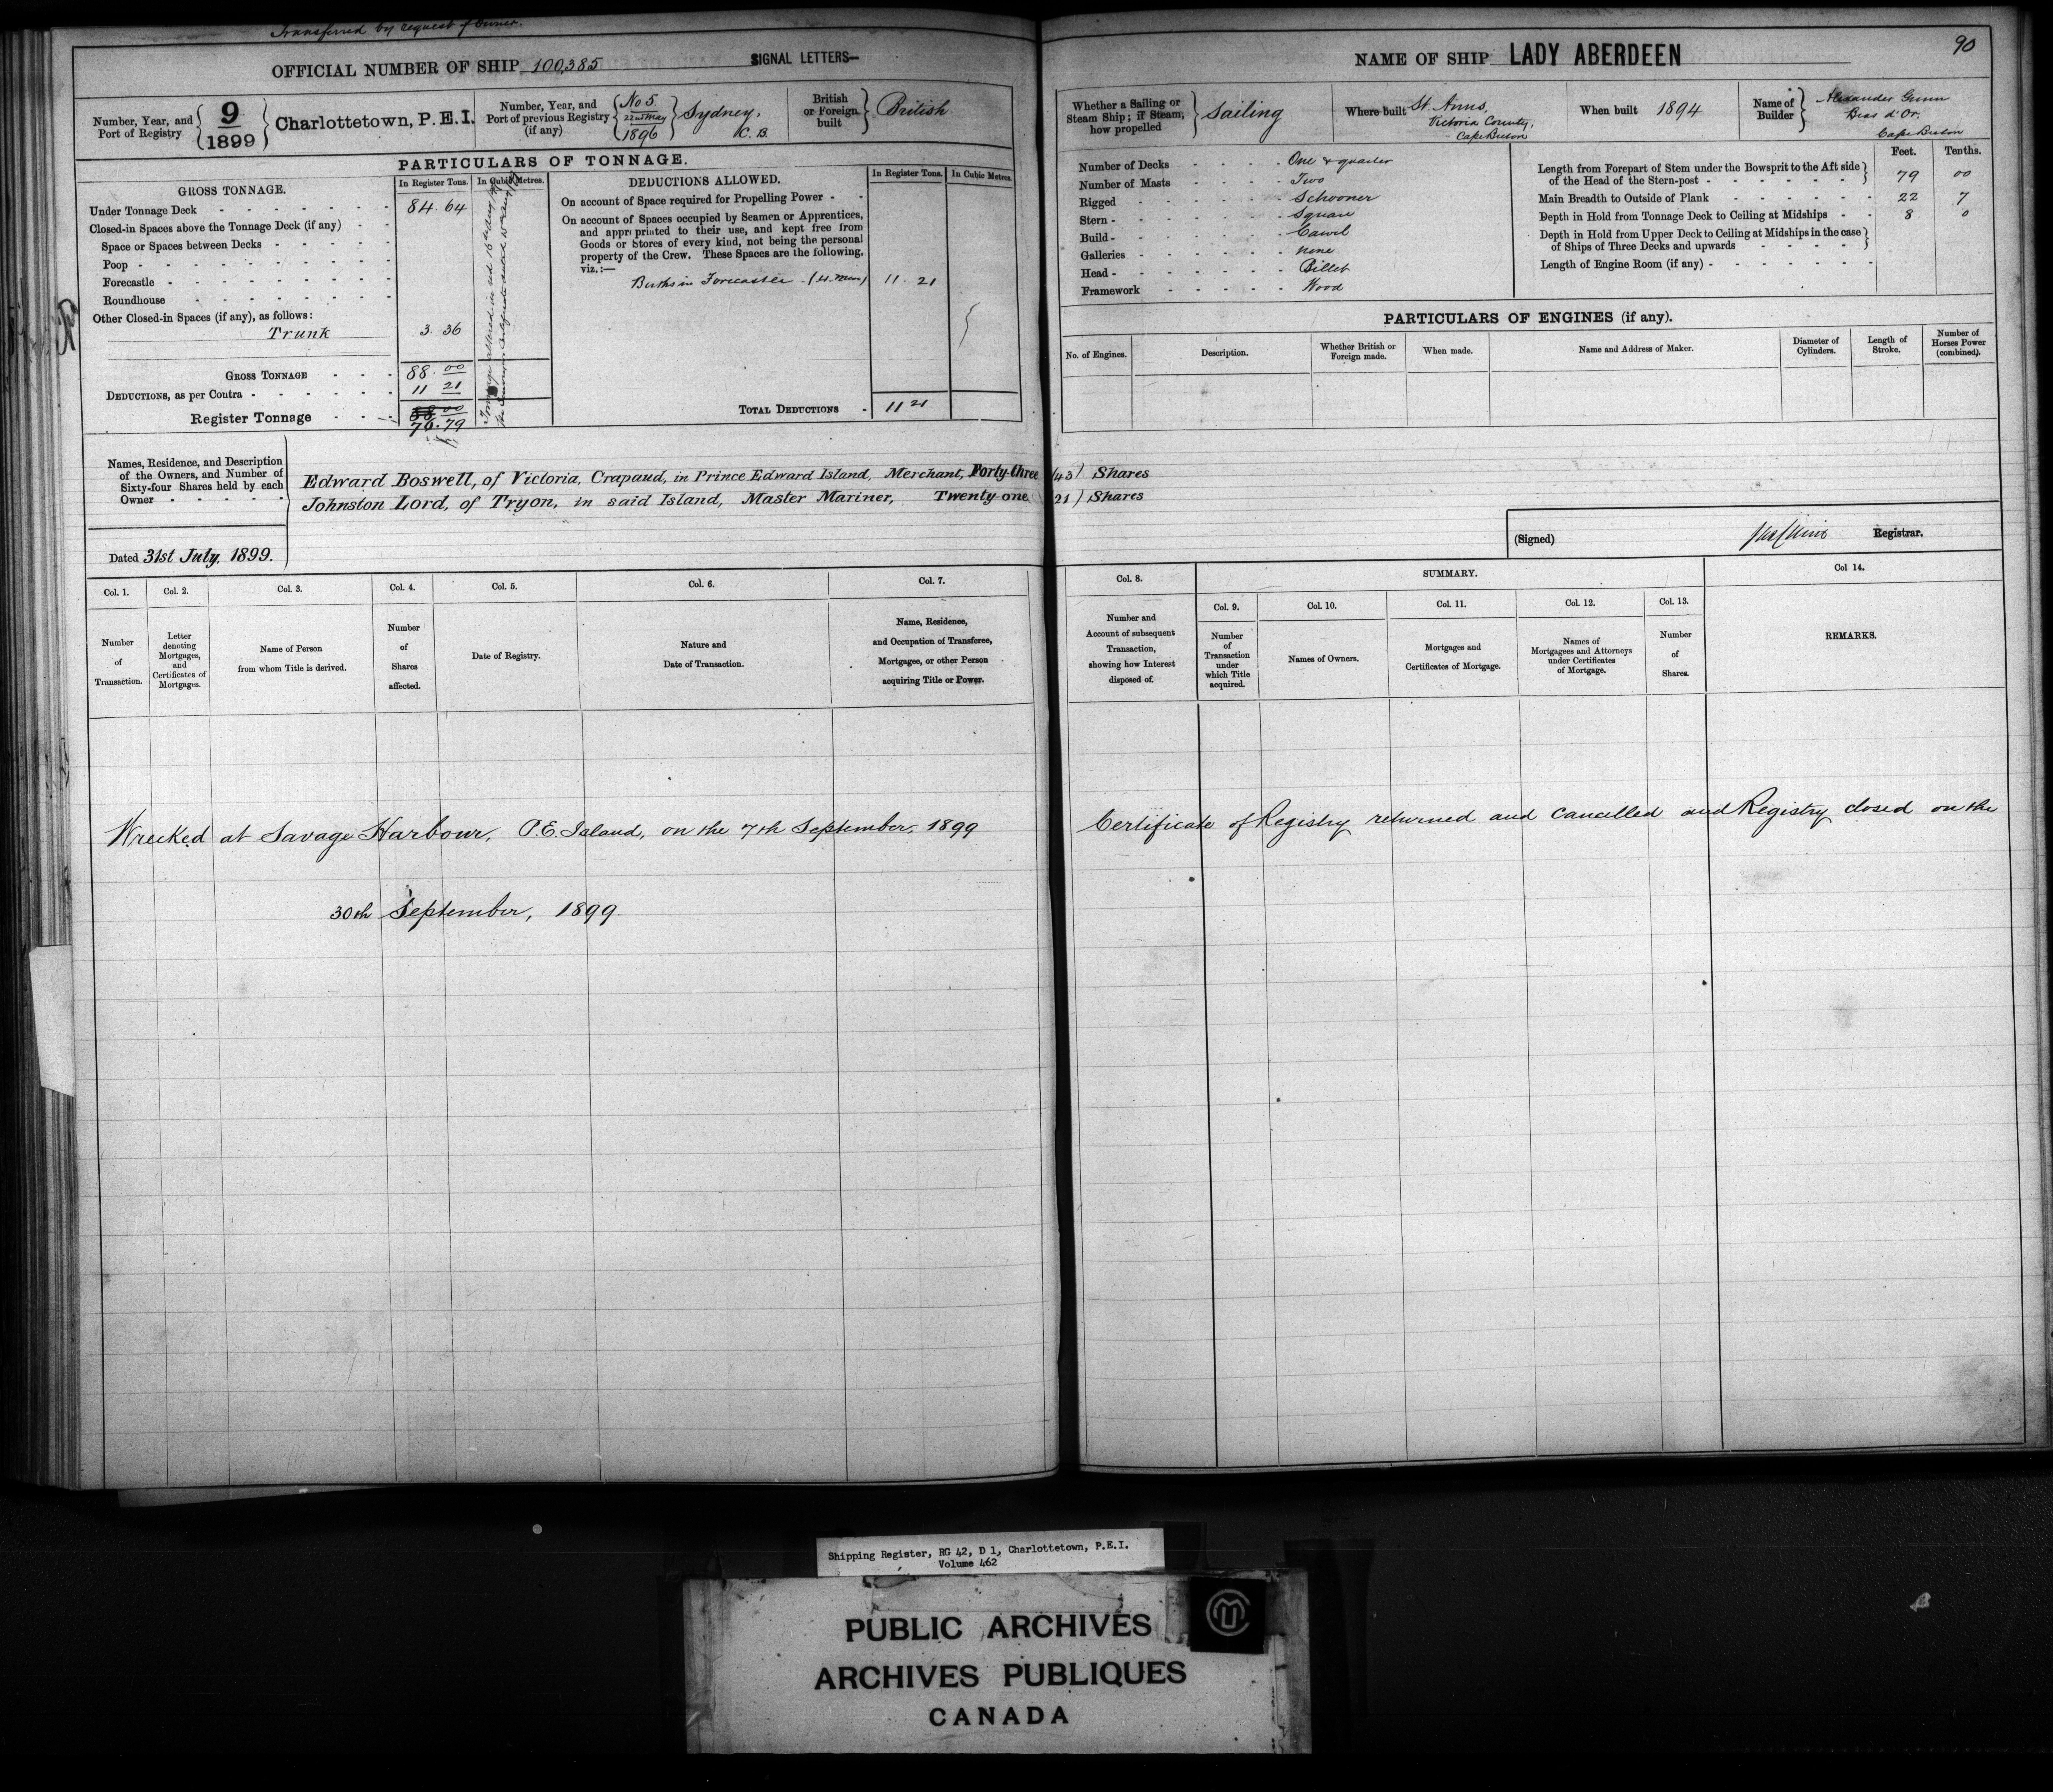 Transferred by request of Owner.
OFFICIAL NUMBER OF SHIP 100,385
SIGNAL LETTERS—
Number, Year, and Port of Registry { 9 / 1899 } Charlottetown, P. E. I.
Number, Year, and Port of previous Registry (if any) { No 5. 22nd May 1896 } Sydney, C. B.
British or Foreign built } British
PARTICULARS OF TONNAGE.
GROSS TONNAGE.
In Register Tons.
In Cubic Metres.
Under Tonnage Deck - - - 84. 64
Closed-in Spaces above the Tonnage Deck (if any) - -
Space or Spaces between Decks - - -
Poop - - -
Forecastle - - -
Roundhouse - - -
Other Closed-in Spaces (if any), as follows:
Trunk 3. 36
GROSS TONNAGE - - - 88. 00
DEDUCTIONS, as per Contra - - - 11 21
Register Tonnage - - - 88 00
76. 79
DEDUCTIONS ALLOWED.
In Register Tons.
In Cubic Metres.
On account of Space required for Propelling Power - -
On account of Spaces occupied by Seamen or Apprentices,
and appropriated to their use, and kept free from
Goods or Stores of every kind, not being the personal
property of the Crew. These Spaces are the following,
viz.:—
Berths in Forecastle (4 men) 11. 21
TOTAL DEDUCTIONS - 11 21
Names, Residence, and Description
of the Owners, and Number of
Sixty-four Shares held by each
Owner - - -
Edward Boswell, of Victoria, Crapaud, in Prince Edward Island, Merchant, Forty-three (43) Shares
Johnston Lord, of Tryon, in said Island, Master Mariner, Twenty-one (21) Shares
Dated 31st July, 1899.
NAME OF SHIP LADY ABERDEEN
90
Whether a Sailing or Steam Ship; if Steam, how propelled } Sailing
Where built St. Anns, Victoria County, Cape Breton
When built 1894
Name of Builder } Alexander Gunn Bras d'Or, Cape Breton
Number of Decks - - - One & quarter
Number of Masts - - - Two
Rigged - - - Schooner
Stern - - - Square
Build - - - Carvel
Galleries - - - None
Head - - - Billet
Framework - - - Wood
Feet. Tenths.
Length from Forepart of Stem under the Bowsprit to the Aft side
of the Head of the Stern-post - - - 79 00
Main Breadth to Outside of Plank - - - 22 7
Depth in Hold from Tonnage Deck to Ceiling at Midships - - 8 0
Depth in Hold from Upper Deck to Ceiling at Midships in the case
of Ships of Three Decks and upwards - - -
Length of Engine Room (if any) - - -
PARTICULARS OF ENGINES (if any).
No. of Engines.
Description.
Whether British or Foreign made.
When made.
Name and Address of Maker.
Diameter of Cylinders.
Length of Stroke.
Number of Horses Power (combined).
(Signed) Registrar.
Col. 1. Number of Transaction.
Col. 2. Letter denoting Mortgages, and Certificates of Mortgages.
Col. 3. Name of Person from whom Title is derived.
Col. 4. Number of Shares affected.
Col. 5. Date of Registry.
Col. 6. Nature and Date of Transaction.
Col. 7. Name, Residence, and Occupation of Transferee, Mortgagee, or other Person acquiring Title or Power.
Col. 8. Number and Account of subsequent Transaction, showing how Interest disposed of.
SUMMARY.
Col. 9. Number of Transaction under which Title acquired.
Col. 10. Names of Owners.
Col. 11. Mortgages and Certificates of Mortgage.
Col. 12. Names of Mortgagees and Attorneys under Certificates of Mortgage.
Col. 13. Number of Shares.
Col 14. REMARKS.
Wrecked at Savage Harbour, P. E. Island, on the 7th September, 1899 Certificate of Registry returned and cancelled and Registry closed on the
30th September, 1899.
Shipping Register, RG 42, D 1, Charlottetown, P.E.I.
Volume 462
PUBLIC ARCHIVES
ARCHIVES PUBLIQUES
CANADA